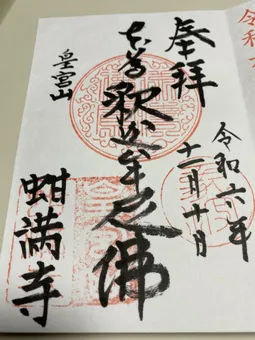 奉拝
令和六年
月十日
本尊 釈迦牟尼佛
皇宮山
蚶満寺
令和